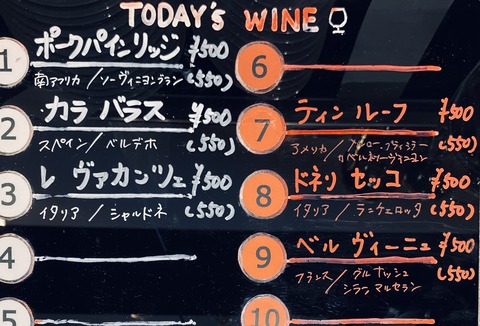 TODAY's WINE
1 ポークパインリッジ ¥500
南アフリカ / ソーヴィニヨンブラン (550)
2 カラ バラス ¥500
スペイン / ベルデホ (550)
3 レ ヴァカンツェ ¥500
イタリア / シャルドネ (550)
4
5
6
7 ティン ルーフ ¥500
アメリカ / (550)
8 ドネリ セッコ ¥500
イタリア / ランチェロッタ (550)
9 ベル ヴィーニュ ¥500
フランス / グルナッシュ (550)
シラー マルセラン
10